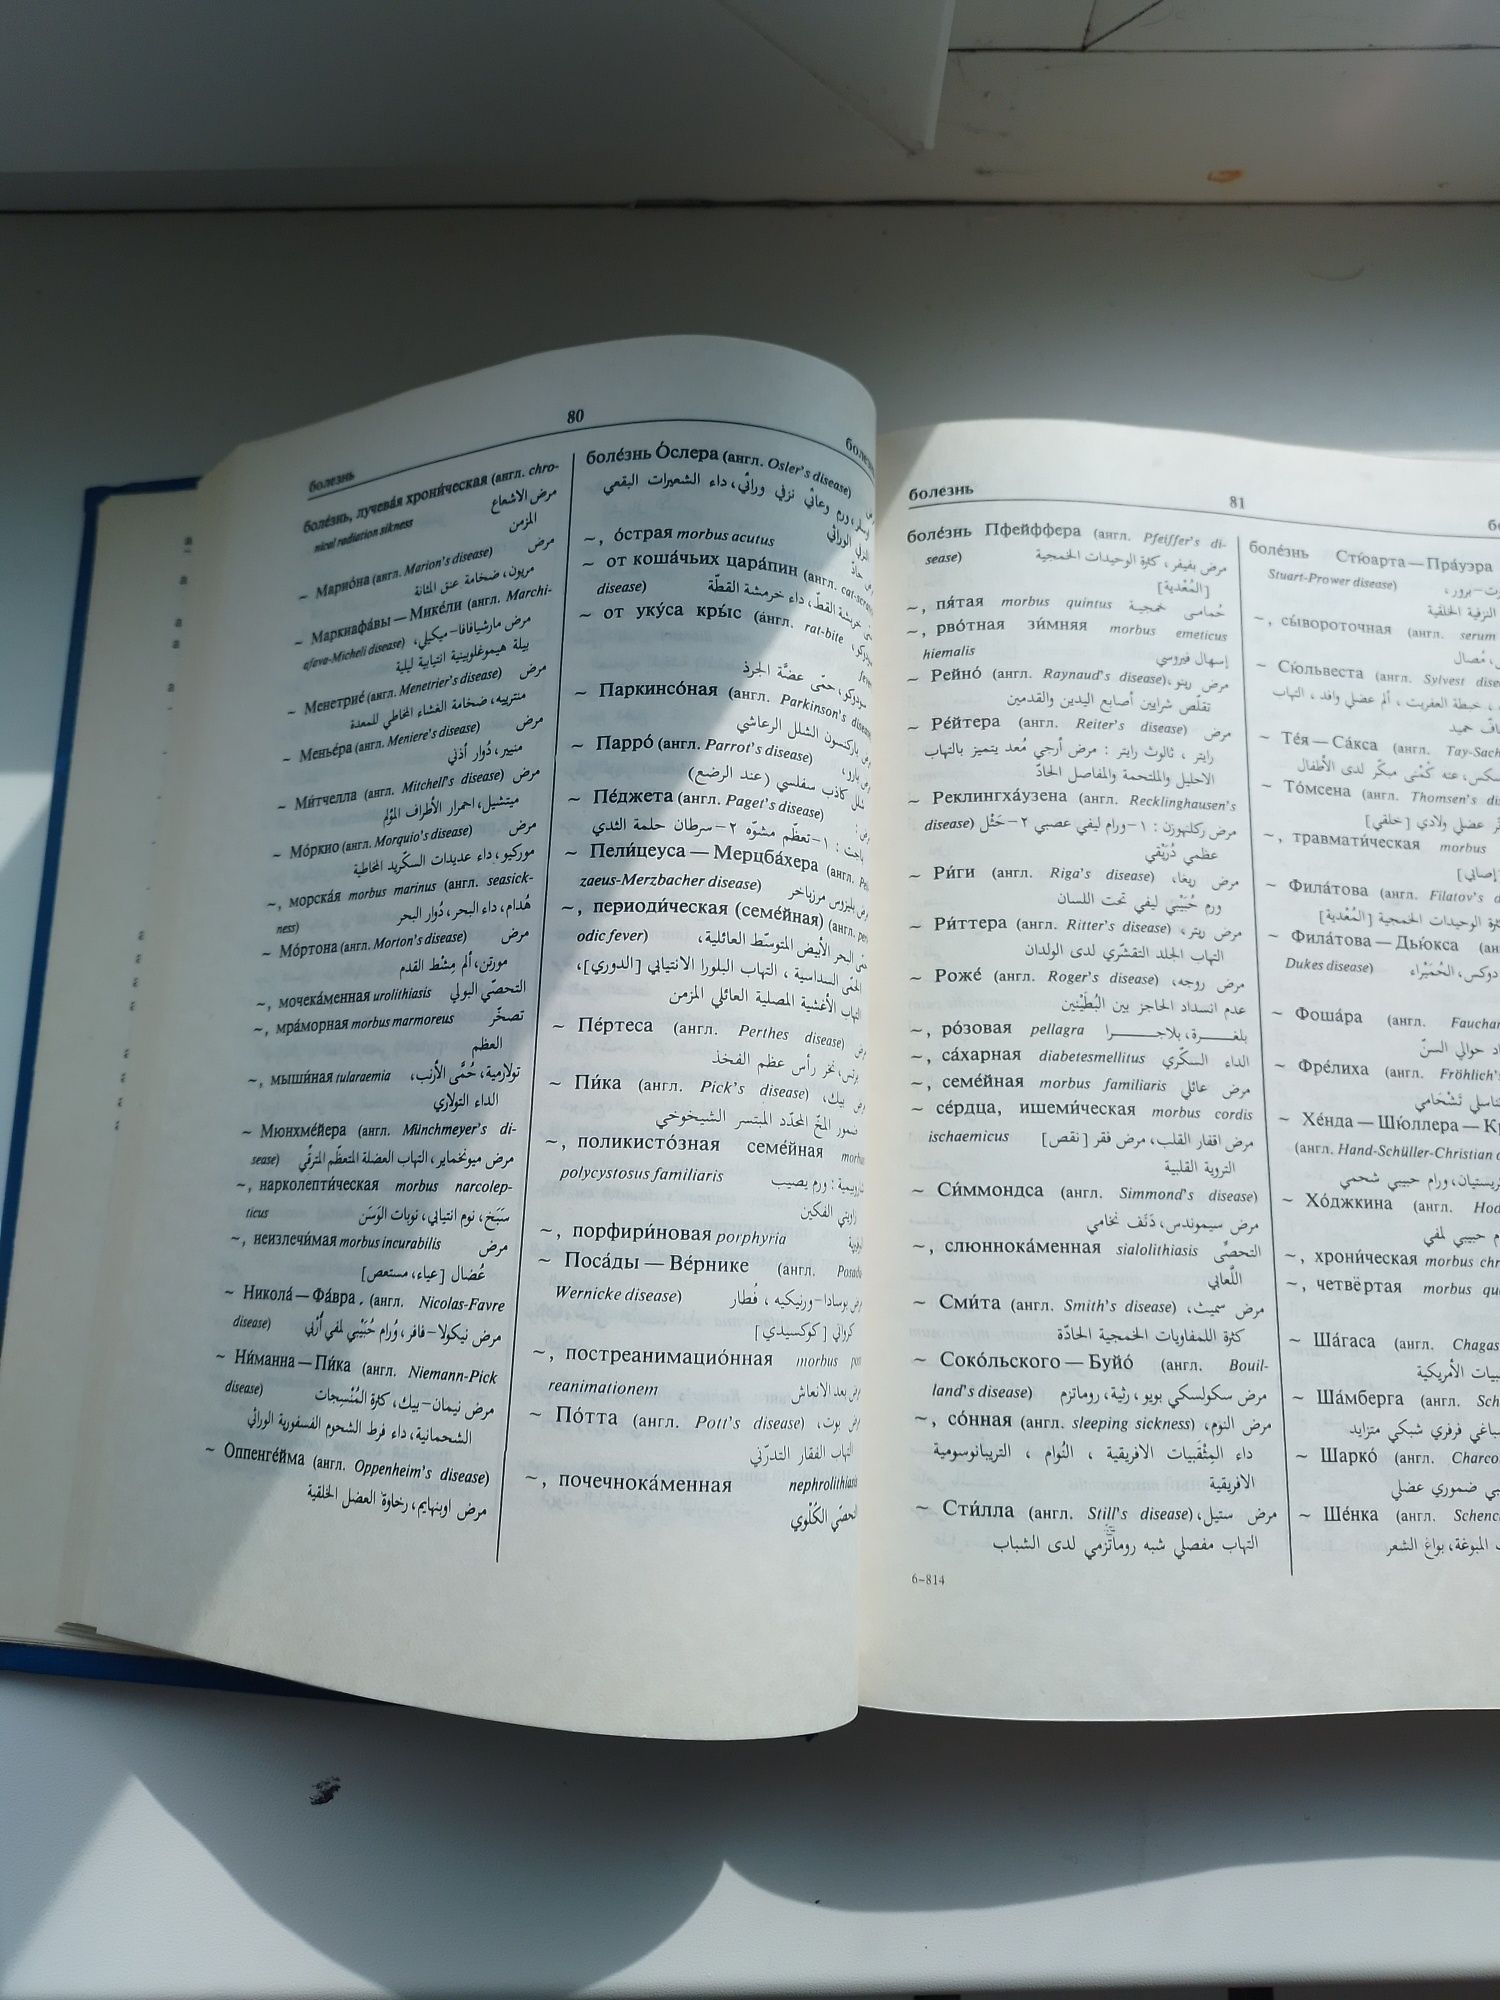 80
болезнь
боле́знь, лучева́я хрони́ческая (англ. chro-
nical radiation sikness مرض الاشعاع
المزمن
~ Марио́на (англ. Marion's disease) مرض
مريون، ضخامة عنق المثانة
~ Маркиафа́вы — Мике́ли (англ. Marchi-
afava-Micheli disease) مرض مارشيافافا–ميكيلي،
بيلة هيموغلوبينية انتيابية ليلية
~ Менетрие́ (англ. Menetrier's disease) مرض
منترييه، ضخامة الغشاء المخاطي للمعدة
~ Менье́ра (англ. Meniere's disease) مرض
منيير، دُوار أذني
~ Ми́тчелла (англ. Mitchell's disease) مرض
ميتشيل، احمرار الأطراف المؤلم
~ Мо́ркио (англ. Morquio's disease) مرض
موركيو، داء عديدات السكّريد المخاطية
~, морска́я morbus marinus (англ. seasick-
ness) هُدام، داء البحر، دُوار البحر
~ Мо́ртона (англ. Morton's disease) مرض
مورتن، ألم مِشْط القدم
~, мочека́менная urolithiasis التحصّي البولي
~, мра́морная morbus marmoreus تصخّر
العظم
~, мыши́ная tularaemia تولارمية، حُمَّى الأرنب،
الداء التولاري
~ Мюнхме́йера (англ. Münchmeyer's di-
sease) مرض ميونخماير، التهاب العضلة المتعظّم المترقّي
~, нарколепти́ческая morbus narcolep-
ticus سَبَخ، نوم انتيابي، نوبات الوَسَن
~, неизлечи́мая morbus incurabilis مرض
عُضال [عياء، مستعص]
~ Никола́ — Фа́вра (англ. Nicolas-Favre
disease) مرض نيكولا–فافر، وُرام حُبَيْبي لمفي أُرْبي
~ Ни́манна — Пи́ка (англ. Niemann-Pick
disease) مرض نيمان–بيك، كثرة المُنْسِجات
الشحمانية، داء فرط الشحوم الفسفورية الوراثي
~ Оппенге́йма (англ. Oppenheim's disease)
مرض اوبنهايم، رخاوة العضل الخلقية
боле́знь О́слера (англ. Osler's disease)
وعائي نزفي وراثي، داء الشعيرات البقعي
النزفي الوراثي
~, о́страя morbus acutus
~ от коша́чьих цара́пин (англ. cat-scratch
disease) خربشة القطّ، داء خرمشة القطّة
~ от уку́са кры́с (англ. rat-bite
سودوكو، حمّى عضّة الجرذ
~ Паркинсо́ная (англ. Parkinson's disease
باركنسون الشلل الرعاشي
~ Парро́ (англ. Parrot's disease)
شلل كاذب سفلسي (عند الرضع)
~ Пе́джета (англ. Paget's disease)
باجت : ١–تعظّم مشوّه ٢–سرطان حلمة الثدي
~ Пели́цеуса — Мерцба́хера (англ.
zaeus-Merzbacher disease) مرض بليزوس مرزباخر
~, периоди́ческая (семе́йная) (англ.
odic fever) البحر الأبيض المتوسّط العائلية،
الحمّى السداسية ، التهاب البلورا الانتيابي [الدوري]،
التهاب الأغشية المصلية العائلي المزمن
~ Пе́ртеса (англ. Perthes disease)
برتس، نخر رأس عظم الفخذ
~ Пи́ка (англ. Pick's disease) بيك،
ضمور المخّ المحدّد المبتسر الشيخوخي
~, поликисто́зная семе́йная
polycystosus familiaris ورم يصيب
زاويتي الفكين
~, порфири́новая porphyria
~ Поса́ды — Ве́рнике (англ.
Wernicke disease) بوسادا–ورنيكيه ، فُطار
كرواني [كوكسيدي]
~, постреанимацио́нная morbus
reanimationem بعد الانعاش
~ По́тта (англ. Pott's disease) بوت،
التهاب الفقار التدرّني
~, почечнока́менная nephrolithiasis
التحصّي الكُلْوي
81
болезнь
боле́знь Пфе́йффера (англ. Pfeiffer's di-
sease) مرض بفيفر، كثرة الوحيدات الخمجية
[المُعْدية]
~, пя́тая morbus quintus حُمامى خمجية
~, рво́тная зи́мняя morbus emeticus
hiemalis إسهال فيروسي
~ Рейно́ (англ. Raynaud's disease) مرض رينو،
تقلّص شرايين أصابع اليدين والقدمين
~ Ре́йтера (англ. Reiter's disease) مرض
رايتر ، ثالوث رايتر : مرض أرجي مُعد يتميز بالتهاب
الاحليل والملتحمة والمفاصل الحادّ
~ Реклингха́узена (англ. Recklinghausen's
disease) مرض ركلنهوزن : ١–ورام ليفي عصبي ٢–حَثَل
عظمي دُرَيْقي
~ Ри́ги (англ. Riga's disease) مرض ريغا،
ورم حُبَيْبي ليفي تحت اللسان
~ Ри́ттера (англ. Ritter's disease) مرض ريتر،
التهاب الجلد التقشّري لدى الولدان
~ Роже́ (англ. Roger's disease) مرض روجه،
عدم انسداد الحاجز بين البُطَيْنين
~, ро́зовая pellagra بلغـــرة، بلاجـــرا
~, са́харная diabetesmellitus الداء السكّري
~, семе́йная morbus familiaris مرض عائلي
~ се́рдца, ишеми́ческая morbus cordis
ischaemicus مرض اقفار القلب، مرض فقر [نقص]
التروية القلبية
~ Си́ммондса (англ. Simmond's disease)
مرض سيموندس، دَنَف نخامي
~, слюннока́менная sialolithiasis التحصّي
اللُّعابي
~ Сми́та (англ. Smith's disease) مرض سميث،
كثرة اللمفاويات الخمجية الحادّة
~ Соко́льского — Буйо́ (англ. Bouil-
land's disease) مرض سكولسكي بويو، رثية، روماتزم
~, со́нная (англ. sleeping sickness) مرض النوم،
داء المِثْقَبيات الافريقية ، النُوام ، التريبانوسومية
الافريقية
~ Сти́лла (англ. Still's disease) مرض ستيل،
التهاب مفصلي شبه روماتزمي لدى الشباب
6–814
боле́знь Стю́арта — Пра́уэра
Stuart-Prower disease)
النزفية الخلقية
~, сы́вороточная (англ. serum
~ Сю́львеста (англ. Sylvest
خبطة العفريت ، ألم عضلي وافد ، التهاب
~ Те́я — Са́кса (англ. Tay-Sach
عته كُمْنى مبكّر لدى الأطفال
~ То́мсена (англ. Thomsen's
عضلي ولادي [خلقي]
~, травмати́ческая morbus
~ Фила́това (англ. Filatov's
كثرة الوحيدات الخمجية [المُعْدية]
~ Фила́това — Дью́кса
Dukes disease) دوكس، الحُمَيْراء
~ Фоша́ра (англ. Fauchar
حوالي السنّ
~ Фре́лиха (англ. Fröhlich's
تناسلي تَشْحامي
~ Хе́нда — Шю́ллера —
(англ. Hand-Schüller-Christian
كريستيان، ورام حبيبي شحمي
~ Хо́джкина (англ.
حبيبي لمفي
~, хрони́ческая morbus
~, четвёртая morbus
~ Ша́гаса (англ. Chagas
الأمريكية
~ Ша́мберга (англ.
فرفري شبكي متزايد
~ Шарко́ (англ.
ضموري عضلي
~ Ше́нка (англ.
المبوغة، بواغ الشعر